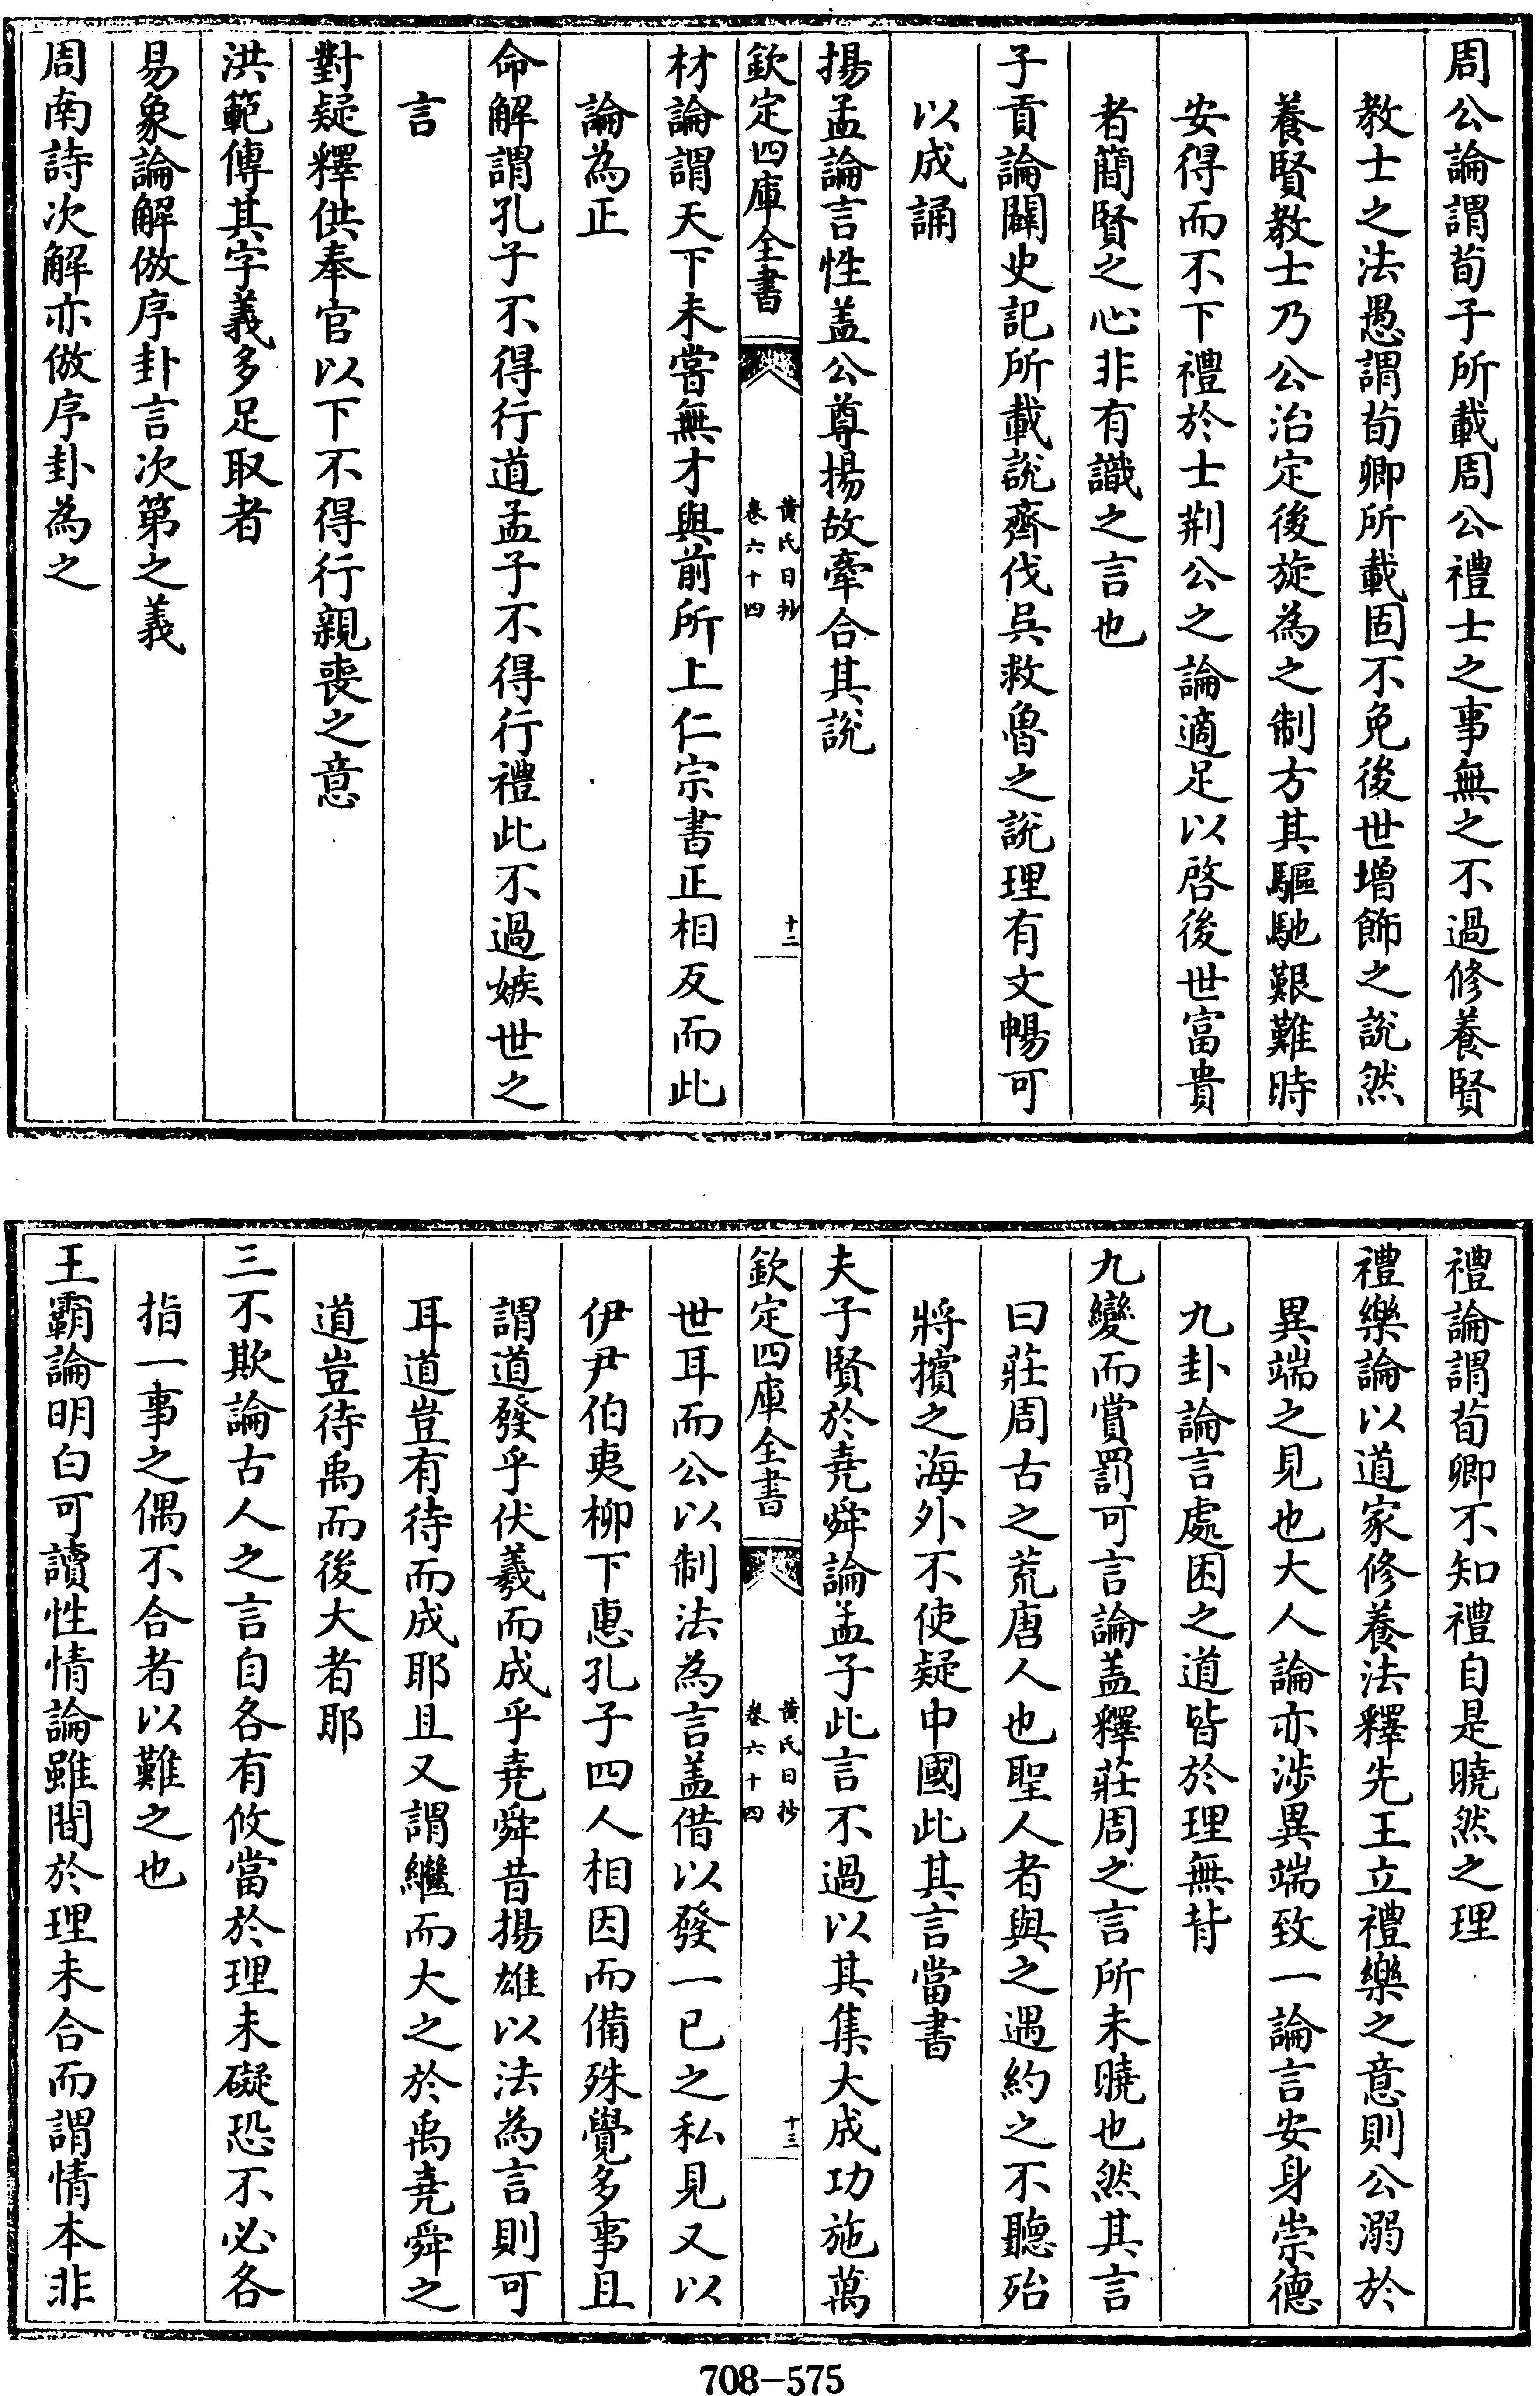 周公論謂荀子所載周公禮士之事無之不過修養賢
教士之法愚謂荀卿所載固不免後世増飾之說然
養賢教士乃公治定後旋為之制方其驅馳艱難時
安得而不下禮於士荆公之論適足以啓後世富貴
者簡賢之心非有識之言也
子貢論闢史記所載說齊伐吳救魯之說理有文暢可
以成誦
揚孟論言性盖公尊揚故牽合其說
欽定四庫全書
黄氏日抄
卷六十四
十二
材論謂天下未嘗無才與前所上仁宗書正相反而此
論為正
命解謂孔子不得行道孟子不得行禮此不過嫉世之
言
對疑釋供奉官以下不得行親喪之意
洪範傳其字義多足取者
易象論解倣序卦言次第之義
周南詩次解亦倣序卦為之
禮論謂荀卿不知禮自是曉然之理
禮樂論以道家修養法釋先王立禮樂之意則公溺於
異端之見也大人論亦涉異端致一論言安身崇德
九卦論言處困之道皆於理無背
九變而賞罰可言論盖釋莊周之言所未曉也然其言
曰莊周古之荒唐人也聖人者與之遇約之不聽殆
將擯之海外不使疑中國此其言當書
夫子賢於堯舜論孟子此言不過以其集大成功施萬
欽定四庫全書
黄氏日抄
卷六十四
十三
世耳而公以制法為言盖借以發一已之私見又以
伊尹伯夷柳下惠孔子四人相因而備殊覺多事且
謂道發乎伏羲而成乎堯舜昔揚雄以法為言則可
耳道豈有待而成耶且又謂繼而大之於禹堯舜之
道豈待禹而後大者耶
三不欺論古人之言自各有攸當於理未礙恐不必各
指一事之偶不合者以難之也
王霸論明白可讀性情論雖間於理未合而謂情本非
708-575